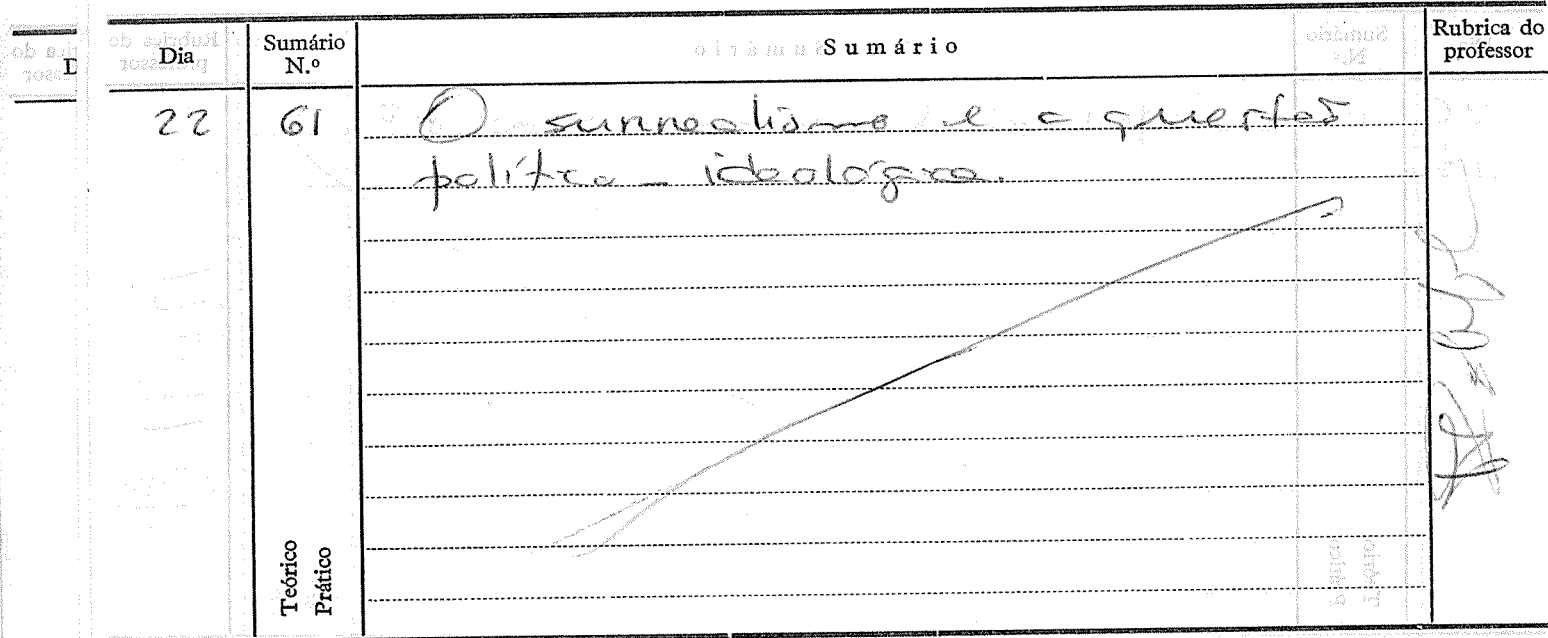 Dia Sumário N.º Sumário Rubrica do professor
22 61 O surrealismo e a questão
política - ideológica.
Teórico
Prático